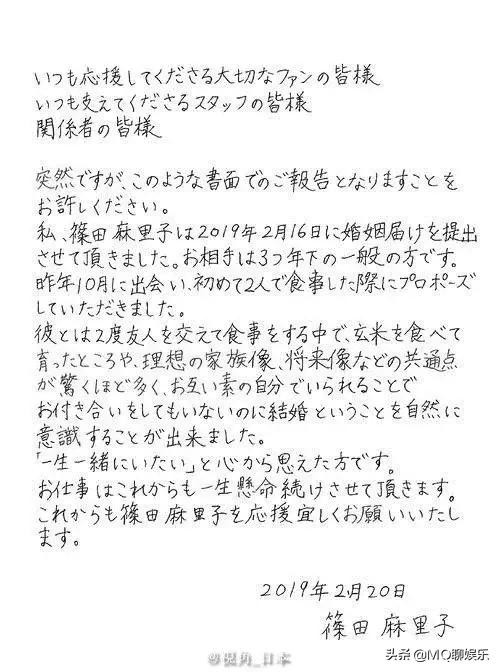 いつも応援してくださる大切なファンの皆様
いつも支えてくださるスタッフの皆様
関係者の皆様
突然ですが、このような書面でのご報告となりますことを
お許しください。
私、篠田麻里子は2019年2月16日に婚姻届けを提出
させて頂きました。お相手は3つ年下の一般の方です。
昨年10月に出会い、初めて2人で食事した際にプロポーズ
していただきました。
彼とは2度友人を交えて食事をする中で、玄米を食べて
育ったところや、理想の家族像、将来像などの共通点
が、驚くほど多く、お互い素の自分でいられることで
お付き合いをしてもいないのに結婚ということを自然に
意識することが出来ました。
「一生一緒にいたい」と心から思えた方です。
お仕事はこれからも一生懸命続けさせて頂きます。
これからも篠田麻里子を応援宜しくお願いいたし
ます。
2019年2月20日
篠田 麻里子
@視角_日本
头条 @MO聊娱乐